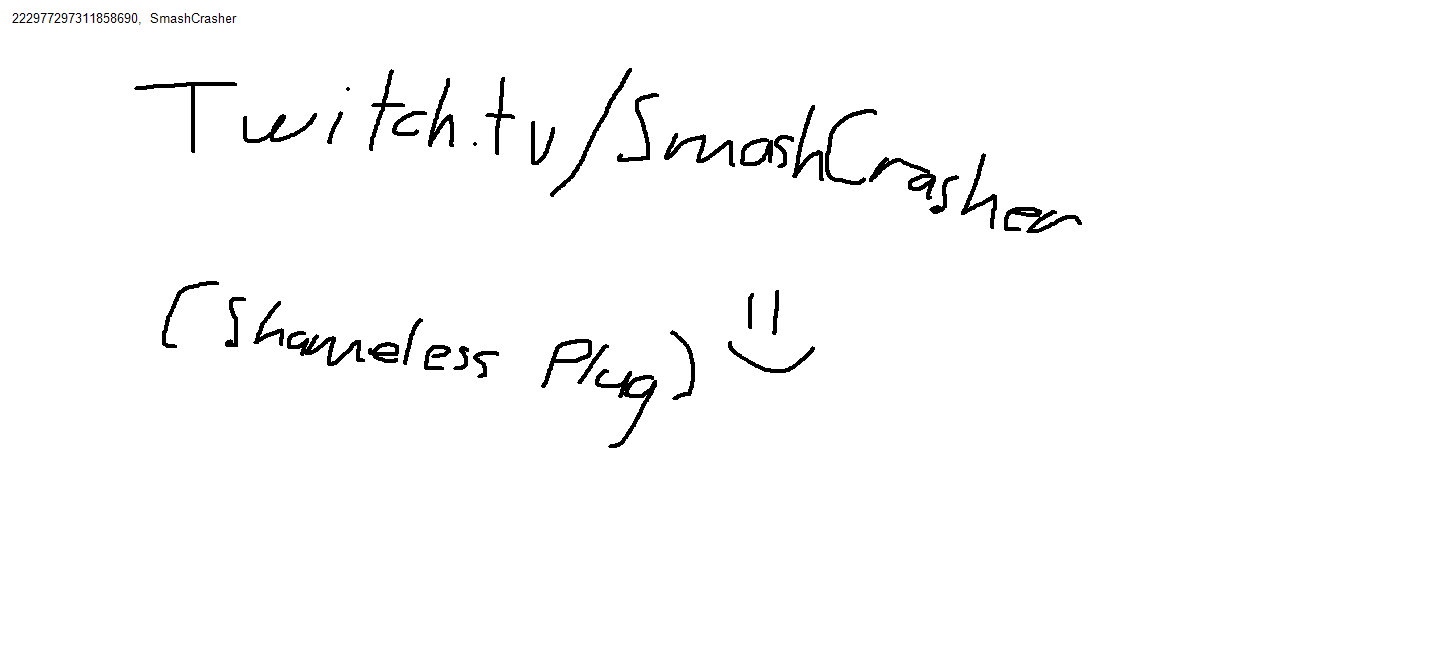 222977297311858690, SmashCrasher
Twitch.tv/SmashCrasher
(Shameless Plug)